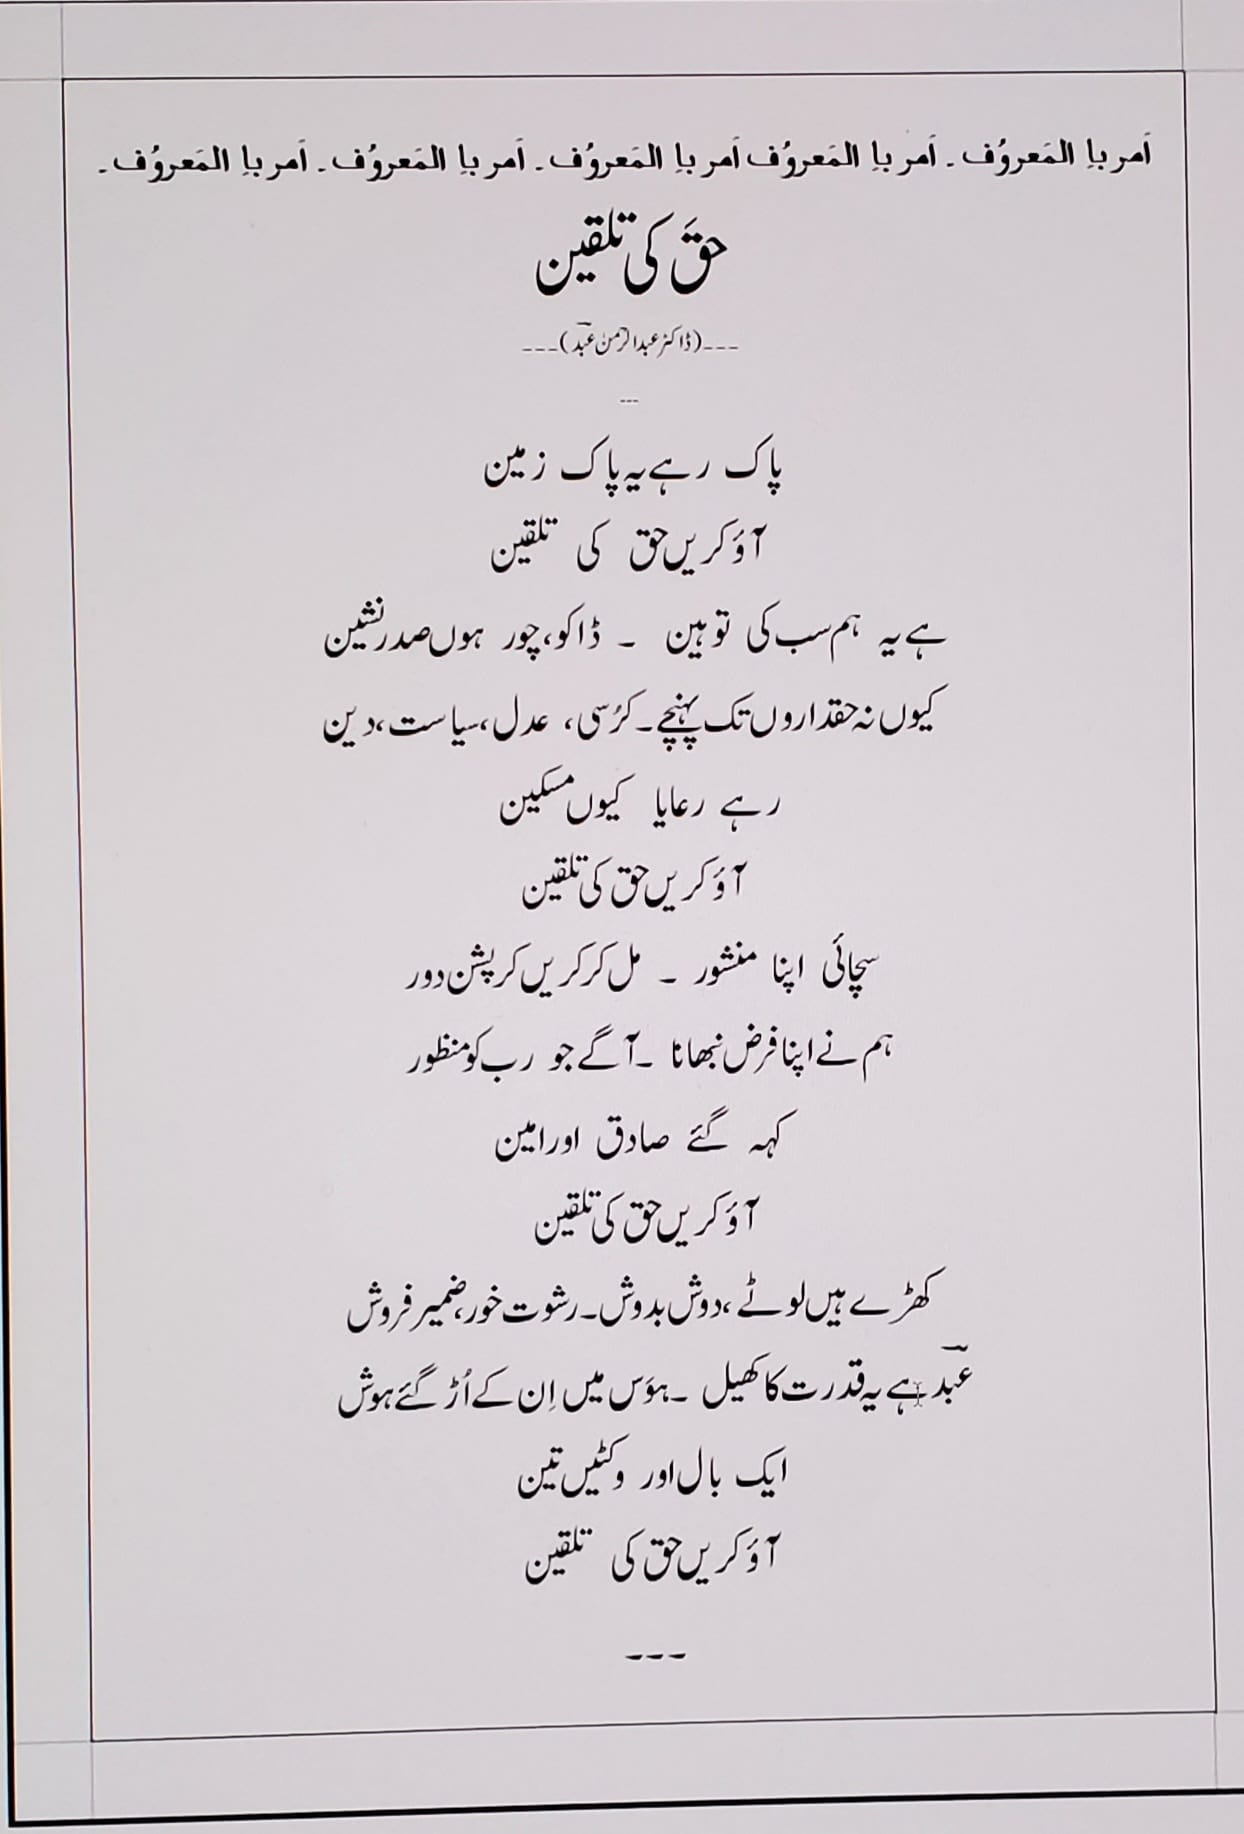 اَمر باِ المَعروُف ۔ اَمر باِ المَعروُف اَمر باِ المَعروُف ۔ اَمر باِ المَعروُف ۔ اَمر باِ المَعروُف ۔
حقَ کی تلقین
---(ڈاکٹر عبدالرحمن عبؔد)---
---
پاک رہے یہ پاک زمین
آؤ کریں حق کی تلقین
ہے یہ ہم سب کی توہین ۔ ڈاکو، چور ہوں صدر نشین
کیوں نہ حقداروں تک پہنچے ۔ کرُسی، عدل، سیاست، دین
رہے رعایا کیوں مسکین
آؤ کریں حق کی تلقین
سچائی اپنا منشور ۔ مل کر کریں کرپشن دور
ہم نے اپنا فرض نبھانا ۔ آگے جو رب کو منظور
کہہ گئے صادق اور امین
آؤ کریں حق کی تلقین
کھڑے ہیں لوٹے، دوش بدوش ۔ رشوت خور، ضمیر فروش
عبؔد ہے یہ قدرت کا کھیل ۔ ہوَس میں اِن کے اُڑ گئے ہوش
ایک بال اور وکٹیں تین
آؤ کریں حق کی تلقین
---